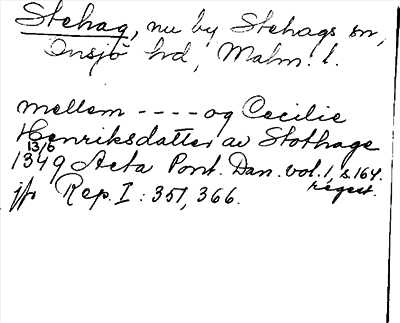 Stehag, nu by Stehags sn,
Onsjö hrd, Malm. l.
mellem ---- og Cecilie
Henriksdatter av Stothage
13/6
1349 Acta Pont. Dan. vol. 1, s. 164.
régest.
jfr Rep. I : 351, 366.